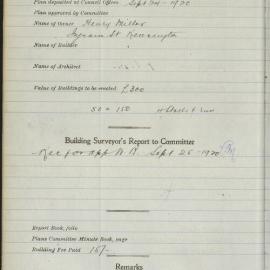 Plan deposited at Council Offices Sept 24 - 1920
Plan approved by Committee
Name of Owner Henry Millar
Ingram St Kensington
Name of Builder
Name of Architect
Value of Buildings to be erected £300
50 × 150
Building Surveyor's Report to Committee
Rec for app Sept 25 - 1920
Report Book, folio
Plans Committee Minute Book, page
Building Fee Paid 15/-
Remarks